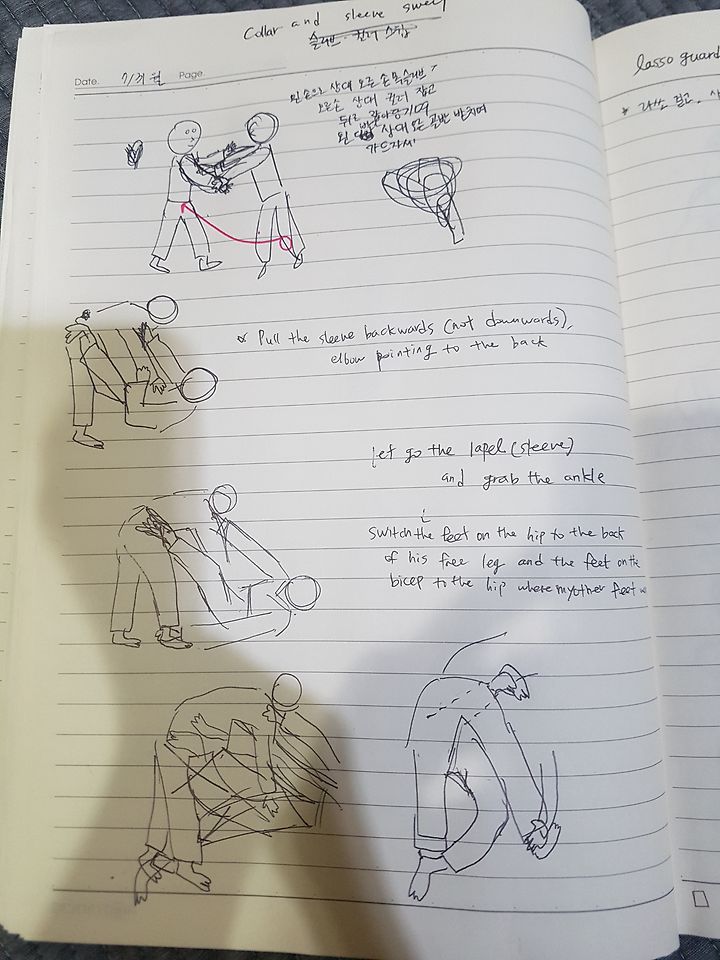 Collar and sleeve sweep
슬리브 컬러 스윕
Date. 7/31 월 Page
왼손으로 상대 오른 손목슬리브
오른손 상대 컬러 잡고
뒤로 잡아당기며
왼 발 상대 오른 골반 받치며
가드자세
* Pull the sleeve backwards (not downwards),
elbow pointing to the back
Let go the lapel (sleeve)
and grab the ankle
Switch the feet on the hip to the back
of his free leg and the feet on the
bicep to the hip where my other feet w
lasso guard
* 라쏘 걸고,